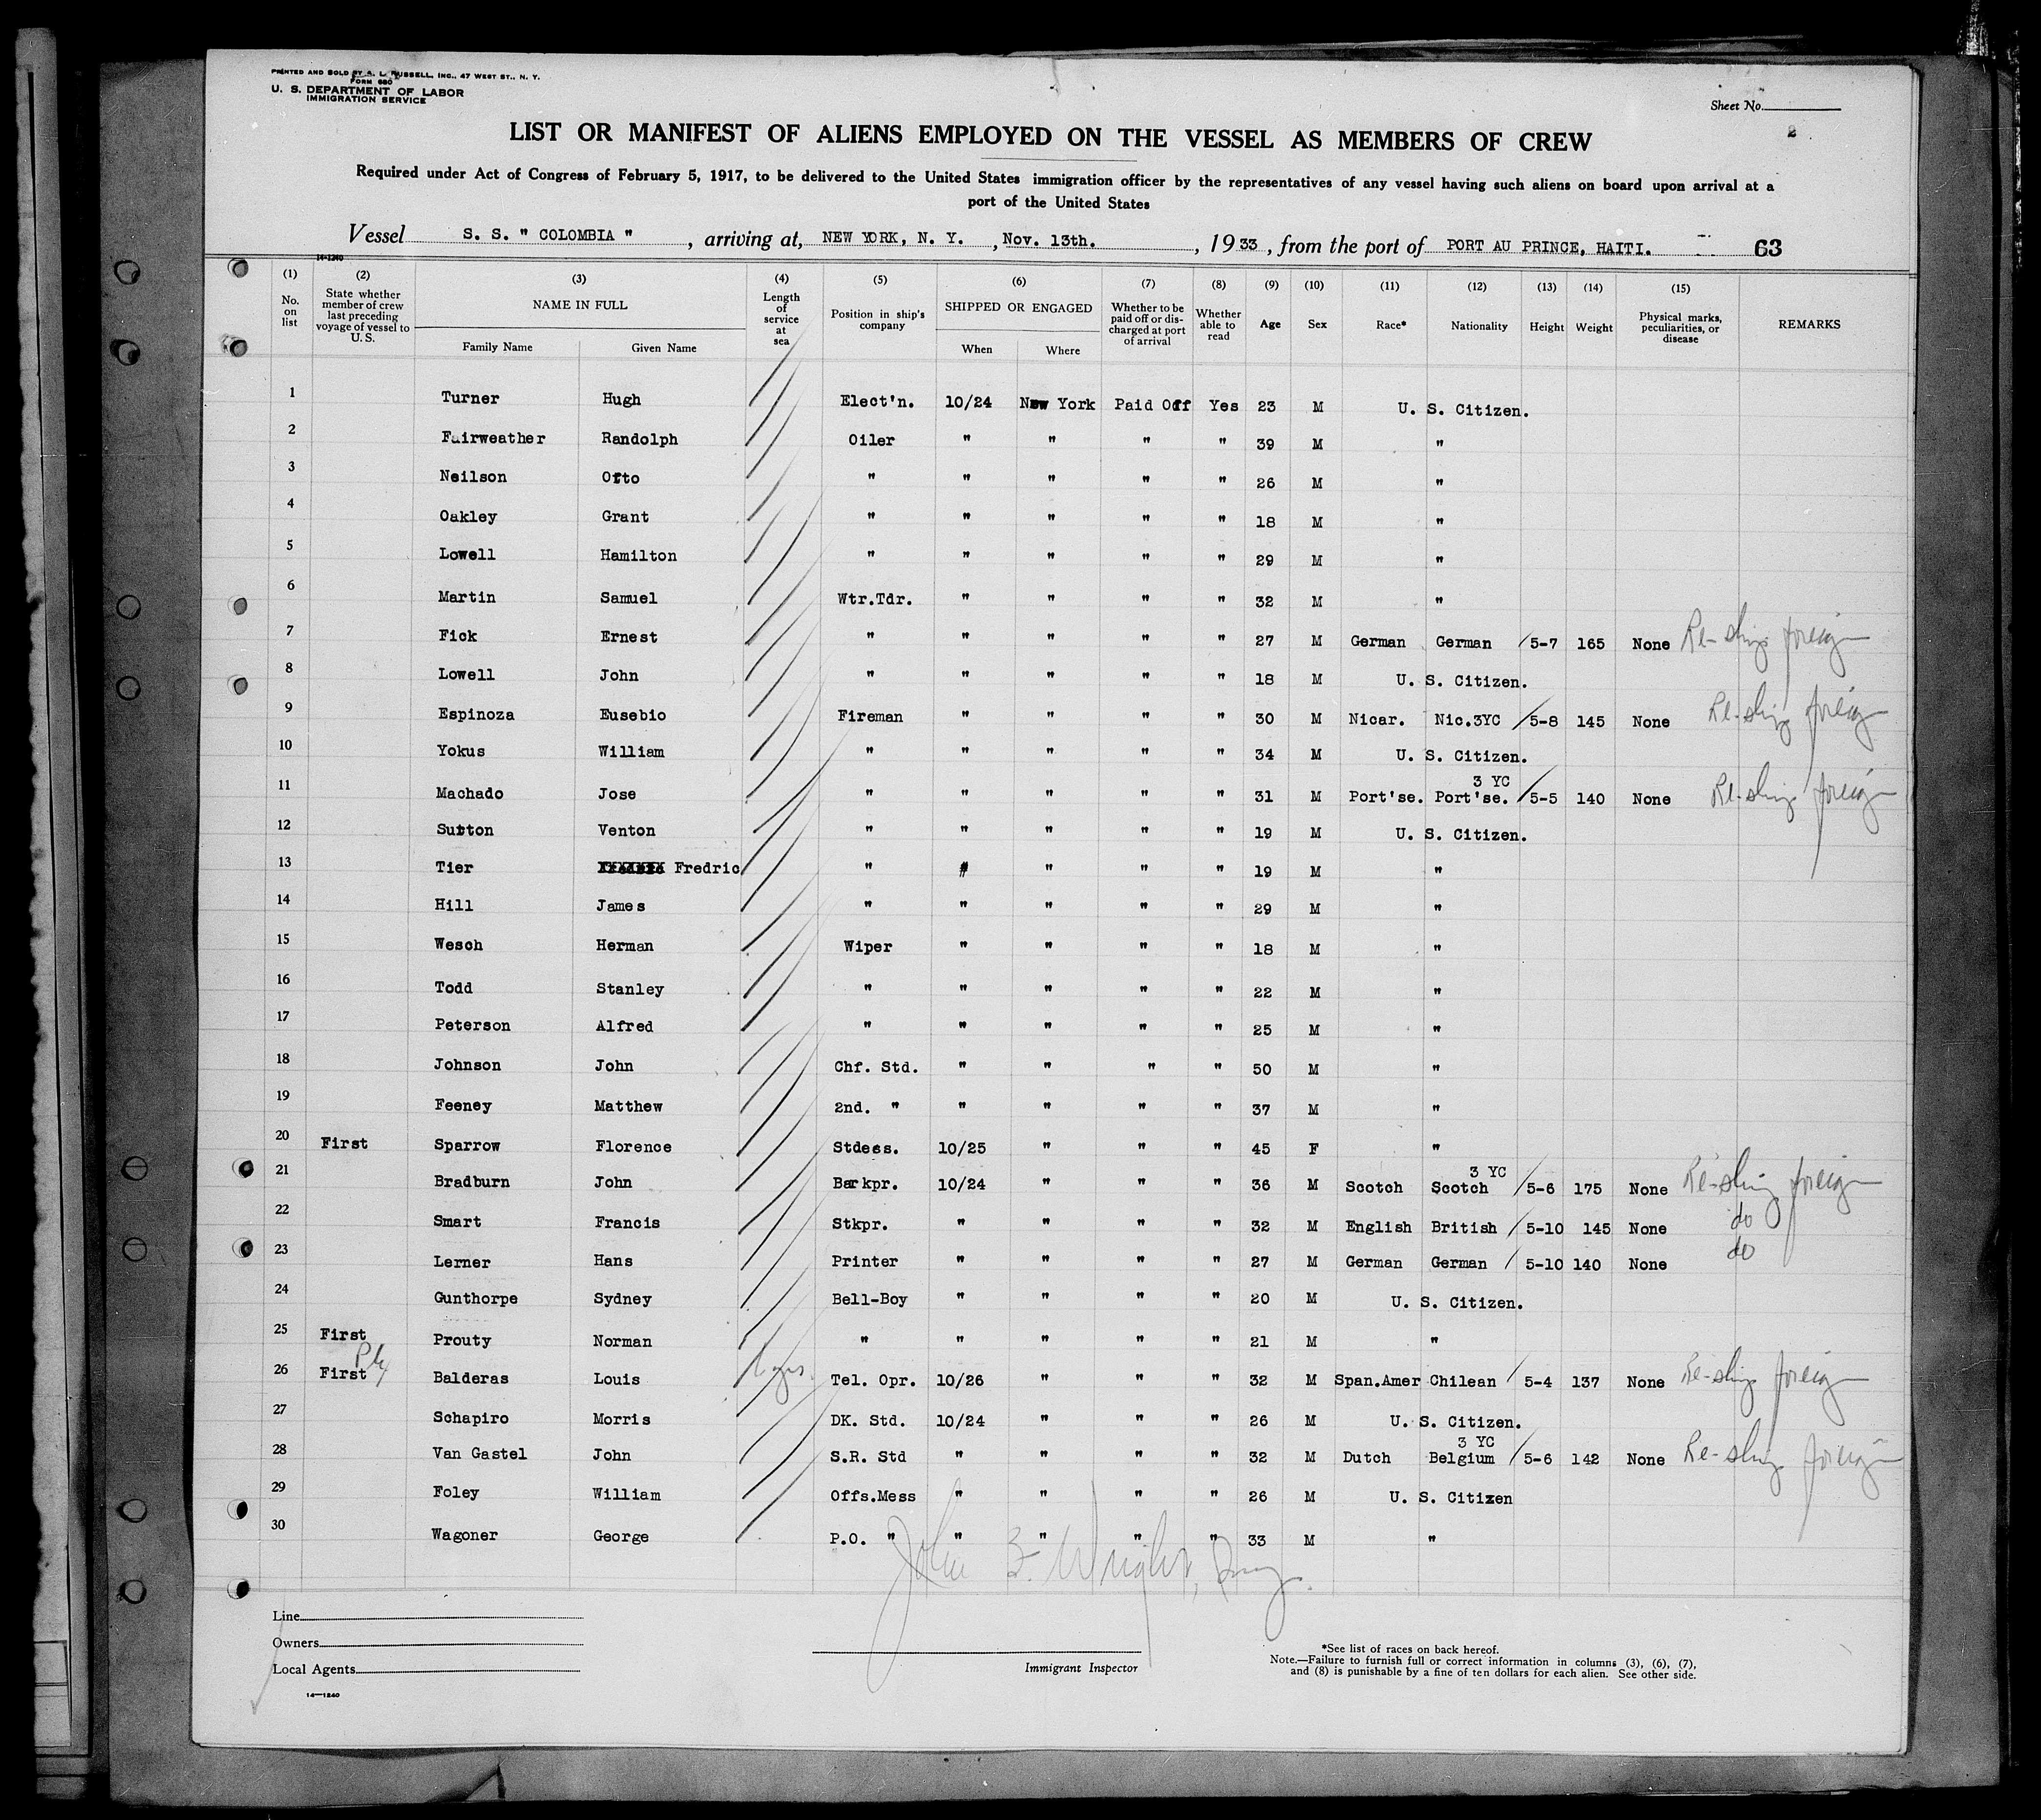 PRINTED AND SOLD BY A. L. RUSSELL, INC., 47 WEST ST., N. Y.
FORM 680
U. S. DEPARTMENT OF LABOR
IMMIGRATION SERVICE
Sheet No.
2
LIST OR MANIFEST OF ALIENS EMPLOYED ON THE VESSEL AS MEMBERS OF CREW
Required under Act of Congress of February 5, 1917, to be delivered to the United States immigration officer by the representatives of any vessel having such aliens on board upon arrival at a
port of the United States
Vessel S. S. " COLOMBIA " , arriving at, NEW YORK, N. Y. , Nov. 13th. , 1933, from the port of PORT AU PRINCE, HAITI. 63
14-1240
(1) (2) (3) (4) (5) (6) (7) (8) (9) (10) (11) (12) (13) (14) (15)
No. on list State whether member of crew last preceding voyage of vessel to U. S. NAME IN FULL Length of service at sea Position in ship's company SHIPPED OR ENGAGED Whether to be paid off or discharged at port of arrival Whether able to read Age Sex Race* Nationality Height Weight Physical marks, peculiarities, or disease REMARKS
Family Name Given Name When Where
1 Turner Hugh Elect'n. 10/24 New York Paid Off Yes 23 M U. S. Citizen.
2 Fairweather Randolph Oiler " " " " 39 M "
3 Neilson Otto " " " " " 26 M "
4 Oakley Grant " " " " " 18 M "
5 Lowell Hamilton " " " " " 29 M "
6 Martin Samuel Wtr.Tdr. " " " " 32 M "
7 Fick Ernest " " " " " 27 M German German 5-7 165 None Re-shing foreign
8 Lowell John " " " " " 18 M U. S. Citizen.
9 Espinoza Eusebio Fireman " " " " 30 M Nicar. Nic.3YC 5-8 145 None Re-shing foreign
10 Yokus William " " " " " 34 M U. S. Citizen.
3 YC
11 Machado Jose " " " " " 31 M Port'se. Port'se. 5-5 140 None Re-shing foreign
12 Sutton Venton " " " " " 19 M U. S. Citizen.
13 Tier Fredric " " " " 19 M "
14 Hill James " " " " " 29 M "
15 Wesch Herman Wiper " " " " 18 M "
16 Todd Stanley " " " " " 22 M "
17 Peterson Alfred " " " " " 25 M "
18 Johnson John Chf. Std. " " " " 50 M "
19 Feeney Matthew 2nd. " " " " " 37 M "
20 First Sparrow Florence Stdess. 10/25 " " " 45 F "
3 YC
21 Bradburn John Barkpr. 10/24 " " " 36 M Scotch Scotch 5-6 175 None Re-shing foreign
22 Smart Francis Stkpr. " " " " 32 M English British 5-10 145 None do
23 Lerner Hans Printer " " " " 27 M German German 5-10 140 None do
24 Gunthorpe Sydney Bell-Boy " " " " 20 M U. S. Citizen.
25 First Prouty Norman " " " " " 21 M "
26 First Balderas Louis Tel. Opr. 10/26 " " " 32 M Span.Amer Chilean 5-4 137 None Re-shing foreign
27 Schapiro Morris DK. Std. 10/24 " " " 26 M U. S. Citizen.
3 YC
28 Van Gastel John S.R. Std " " " " 32 M Dutch Belgium 5-6 142 None Re-shing foreign
29 Foley William Offs.Mess " " " " 26 M U. S. Citizen
30 Wagoner George P.O. " " " " " 33 M "
John B. Wright,
Line
Owners
Local Agents
14—1240
Immigrant Inspector
*See list of races on back hereof.
Note.—Failure to furnish full or correct information in columns (3), (6), (7),
and (8) is punishable by a fine of ten dollars for each alien. See other side.